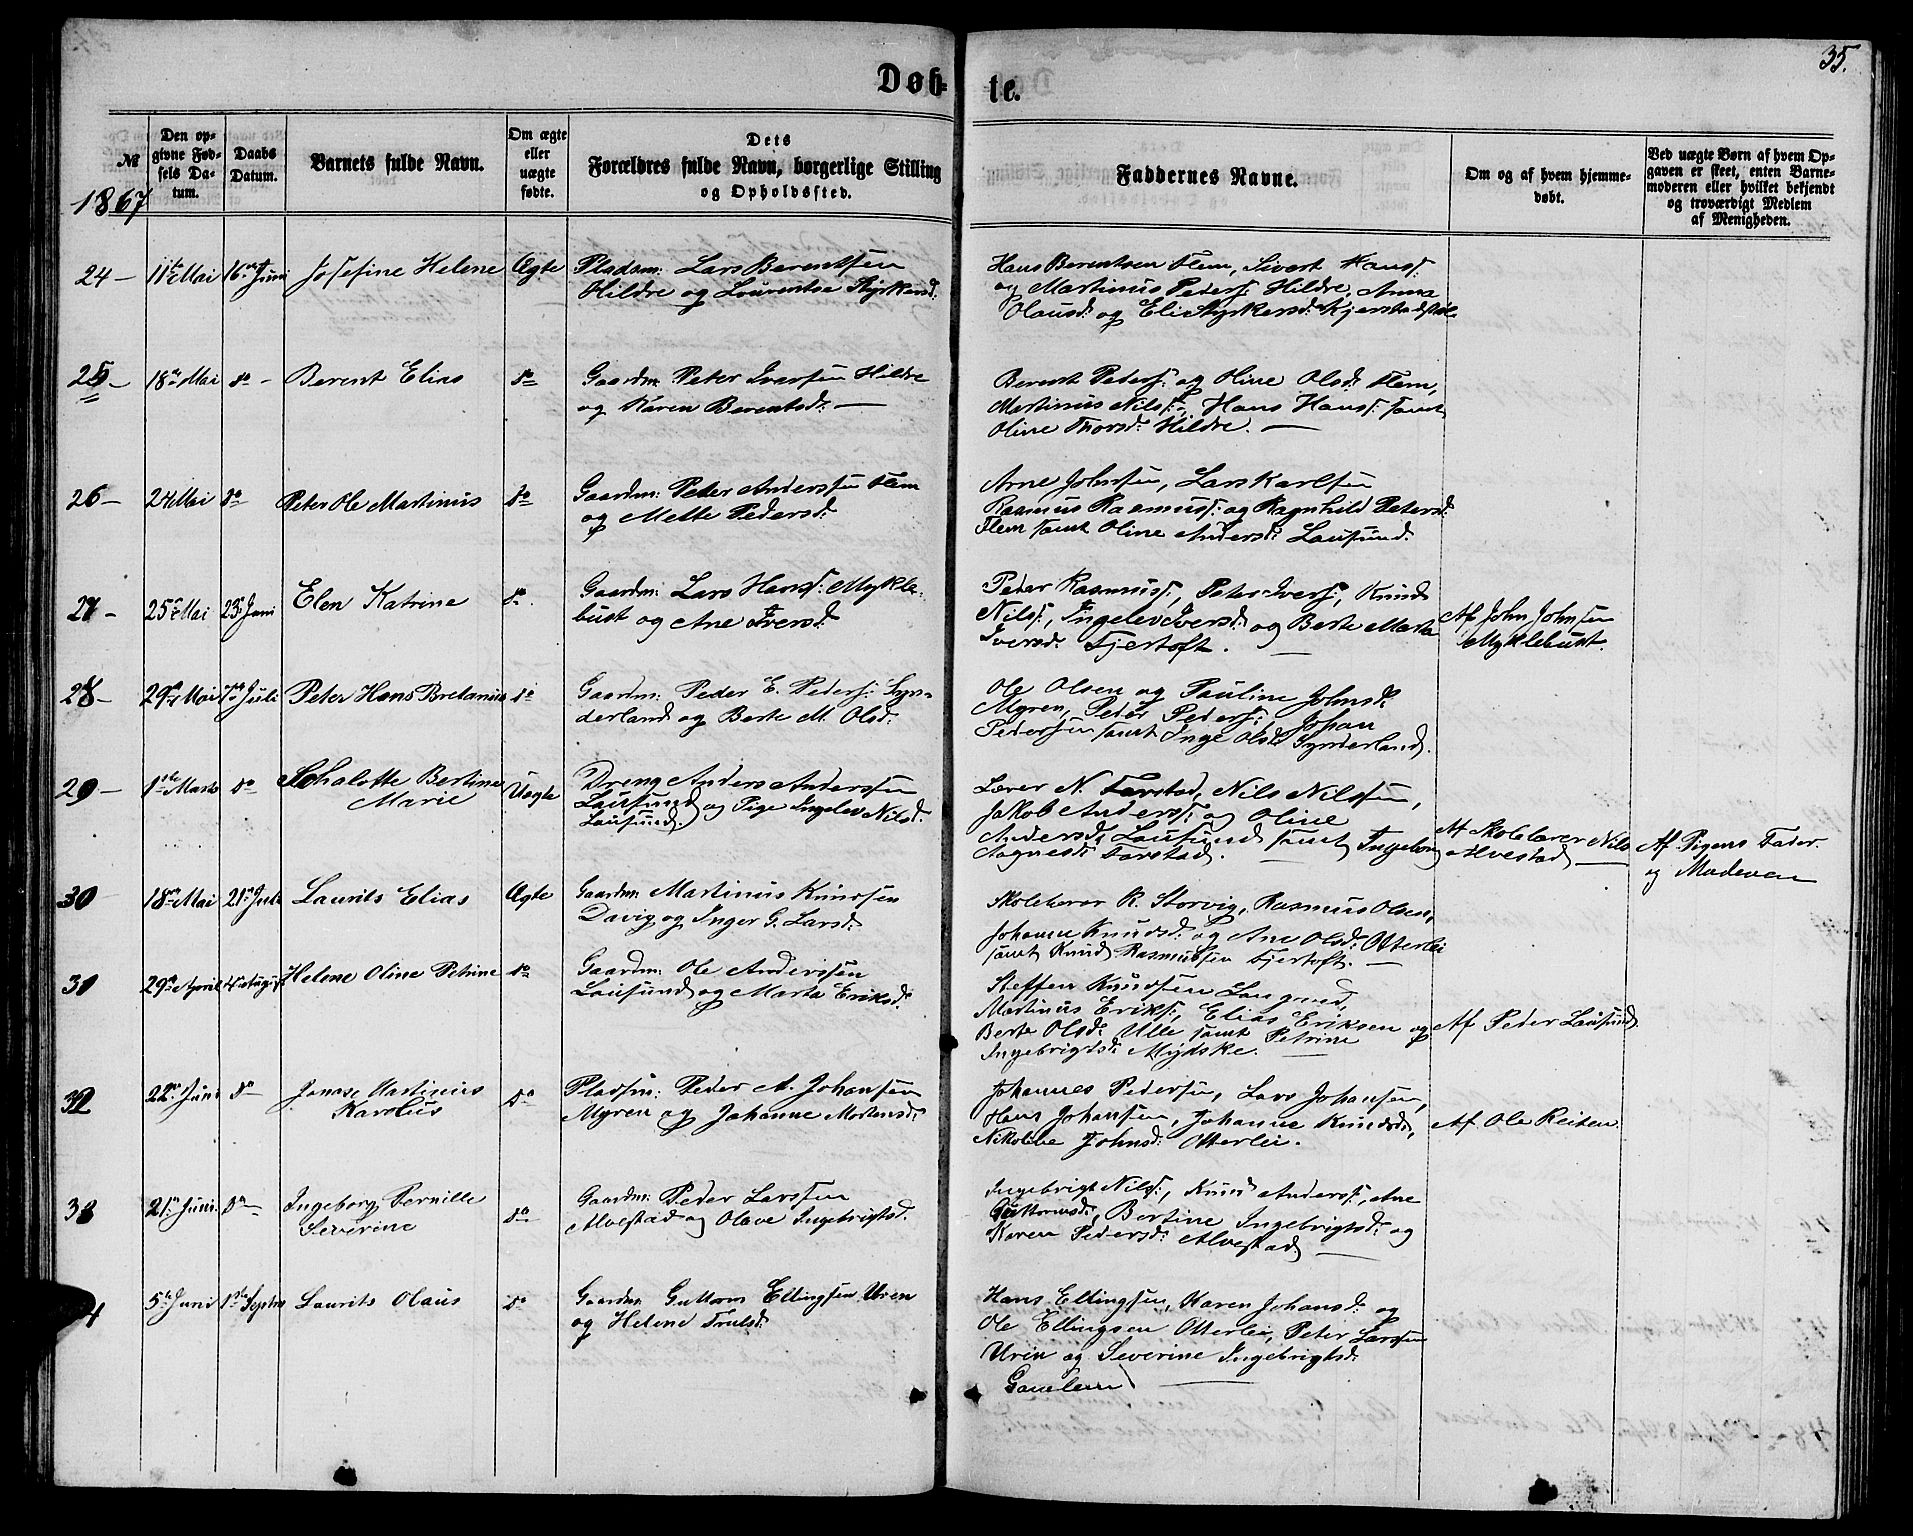 35.
Døb-
te.
№
Den op-
givne Fød-
sels Da-
tum.
Daabs
Datum.
Barnets fulde Navn.
Om ægte
eller
uægte
fødte.
Dets
Forældres fulde Navn, borgerlige Stilling
og Opholdssted.
Faddernes Navne.
Om og af hvem hjemme-
døbt.
Ved uægte Børn af hvem Op-
gaven er skeet, enten Barne-
moderen eller hvilket bekjendt
og troværdigt Medlem
af Menigheden.
1867
24 - 11te Mai 16de Juni Josefine Helene Ægte
Pladsm: Lars Berentsen
Hildre og Lourentse Styrkersd:
Hans Berentsen Flem, Sivert Hans:
og Martinus Peders: Hildre, Anna
Olausd: og Eli Styrkersd:
25 - 18de Mai do - Berent Elias do
Gaardm: Peter Iversen Hildre
og Karen Berentsd: -
Berent Peders: og Oline Olsd: Flem,
Martinus Nils:, Hans Hans: samt
Oline Thorsd: Hildre. -
26 - 24 Mai do Peter Ole Martinus do
Gaardm: Peter Anderssen Flem
og Mette Pedersd:
Arne Johnsen, Lars Karlsen
Rasmus Rasmus: og Ragnhild Petersd:
Flem samt Oline Andersd: Lausund.
27 - 25de Mai 23de Juni Elen Katrine do.
Gaardm: Lars Hans: Mykle-
bust og Ane Iversd:
Peder Rasmus:, Peter Ivers:, Knud
Nils:, Ingelev Iversd: og Berte Marta
Iversd: Fjertoft. -
Af John Johnsen
Myklebust.
28 - 29de Mai 7de Juli Peter Hans Bretanus do
Gaardm: Peder E. Peders: Syn-
derland og Berte M. Olsd:
Ole Olsen og Pauline Johnsd:
Myren, Peder Peders:, Johan
Pedersen samt Inge Olsd: Synderland.
29 - 1ste Marts do Schalotte Bertine
Marie Uægte
Dreng Anders Andersen
Lausund og Pige Ingelev Nilsd:
Lausund.
Lærer N. Farstad, Nils Nilssen,
Jakob Anders: og Oline
Andersd: Lausund samt Ingeborg
Aagnesd: Farstad.
Af Skolelærer Nils
Alvestad -
Af Pigens Fader
og Moderen
30 18de Mai 21de Juli Laurits Elias Ægte
Gaardm: Martinus Knudsen
Davig og Inger G. Larsd:
Skolelærer R. Storvig, Rasmus Olsen,
Johanne Knudsd: og Ane Olsd: Otterlei
samt Knud Rasmussen Fjertoft. -
31 29de April 4de August Helene Oline Petrine do
Gaardm: Ole Anderssen
Lausund og Marta Eriksd:
Steffen Knudsen Langmed,
Martinus Eriks:, Elias Eriksen og
Berte Olsd: Ulle samt Petrine
Ingebrigtsd: Mydske. -
Af Peder Lausund.
32 22de Juni do Jonas Martinus
Karolus do
Pladsm: Peder A. Johansen
Myren og Johanne Mortensd:
Johannes Pedersen, Lars Johansen,
Hans Johansen, Johanne Knudsd:,
Nikoline Johnsd: Otterlei.
Af Ole Reiten
33 21de Juni do Ingeborg Pernille
Severine do
Gaardm: Peder Larssen
Alvestad og Olave Ingebrigtsd.
Ingebrigt Nils:, Knud Anders:, Ane
Guttormsd:, Bertine Ingebrigtsd: og
Karen Pedersd: Alvestad -
4 5te Juni 1ste Septbr Laurits Olaus do
Gaardm: Guttorm Ellingsen Uren
og Helene Trulsd:
Hans Ellingsen, Karen Johansd: og
Ole Ellingsen Otterlei, Peter Larssen
Uren og Severine Ingebrigtsd:
Gamlem -